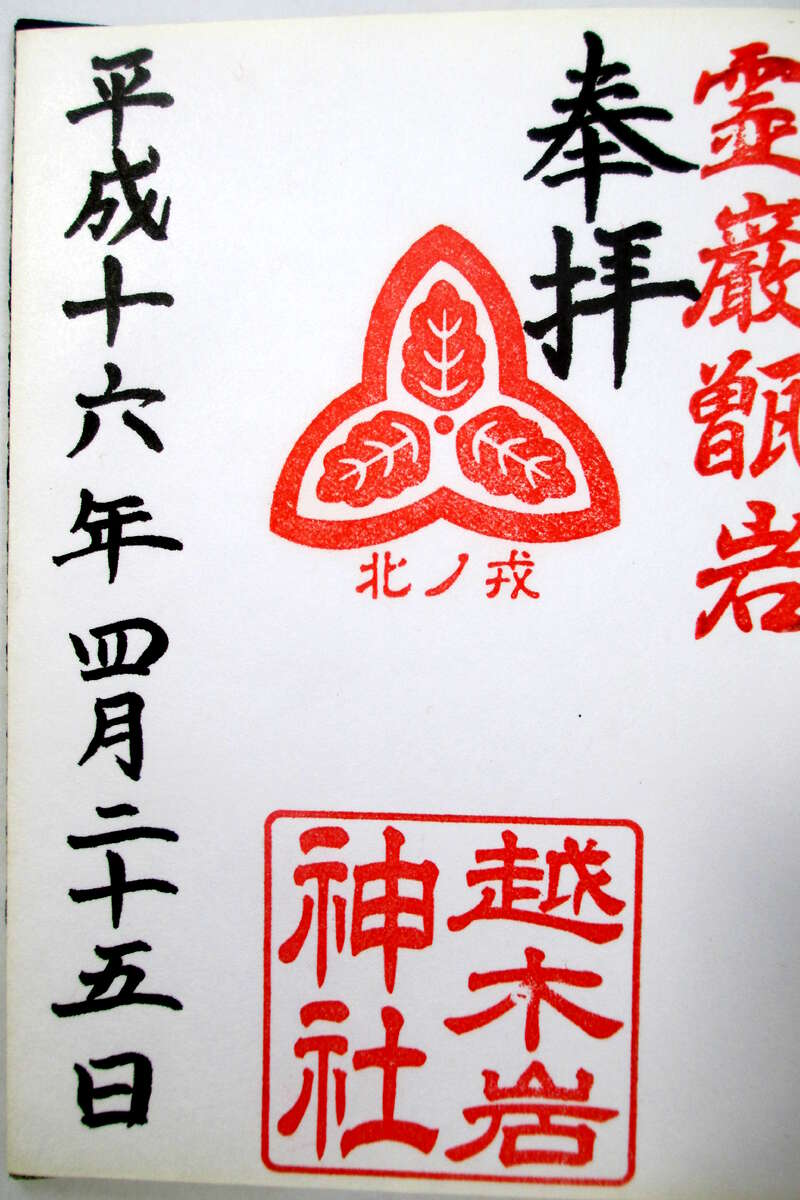 霊巌甑岩
奉拝
北ノ戎
越木岩
神社
平成十六年四月二十五日